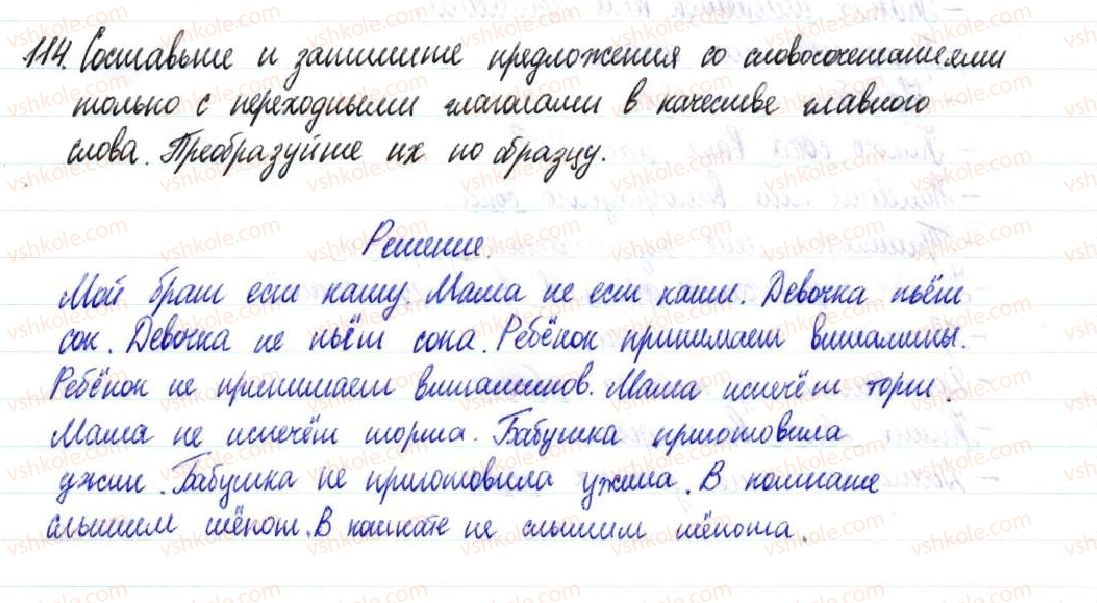 114. Составьте и запишите предложения со словосочетаниями
только с переходными глаголами в качестве главного
слова. Преобразуйте их по образцу.
Решение.
Мой брат ест кашу. Маша не ест каши. Девочка пьёт
сок. Девочка не пьёт сока. Ребёнок принимает витамины.
Ребёнок не принимает витаминов. Маша испечёт торт.
Маша не испечёт торта. Бабушка приготовила
ужин. Бабушка не приготовила ужина. В комнате
слышим шёпот. В комнате не слышим шёпота.
vshkole.com